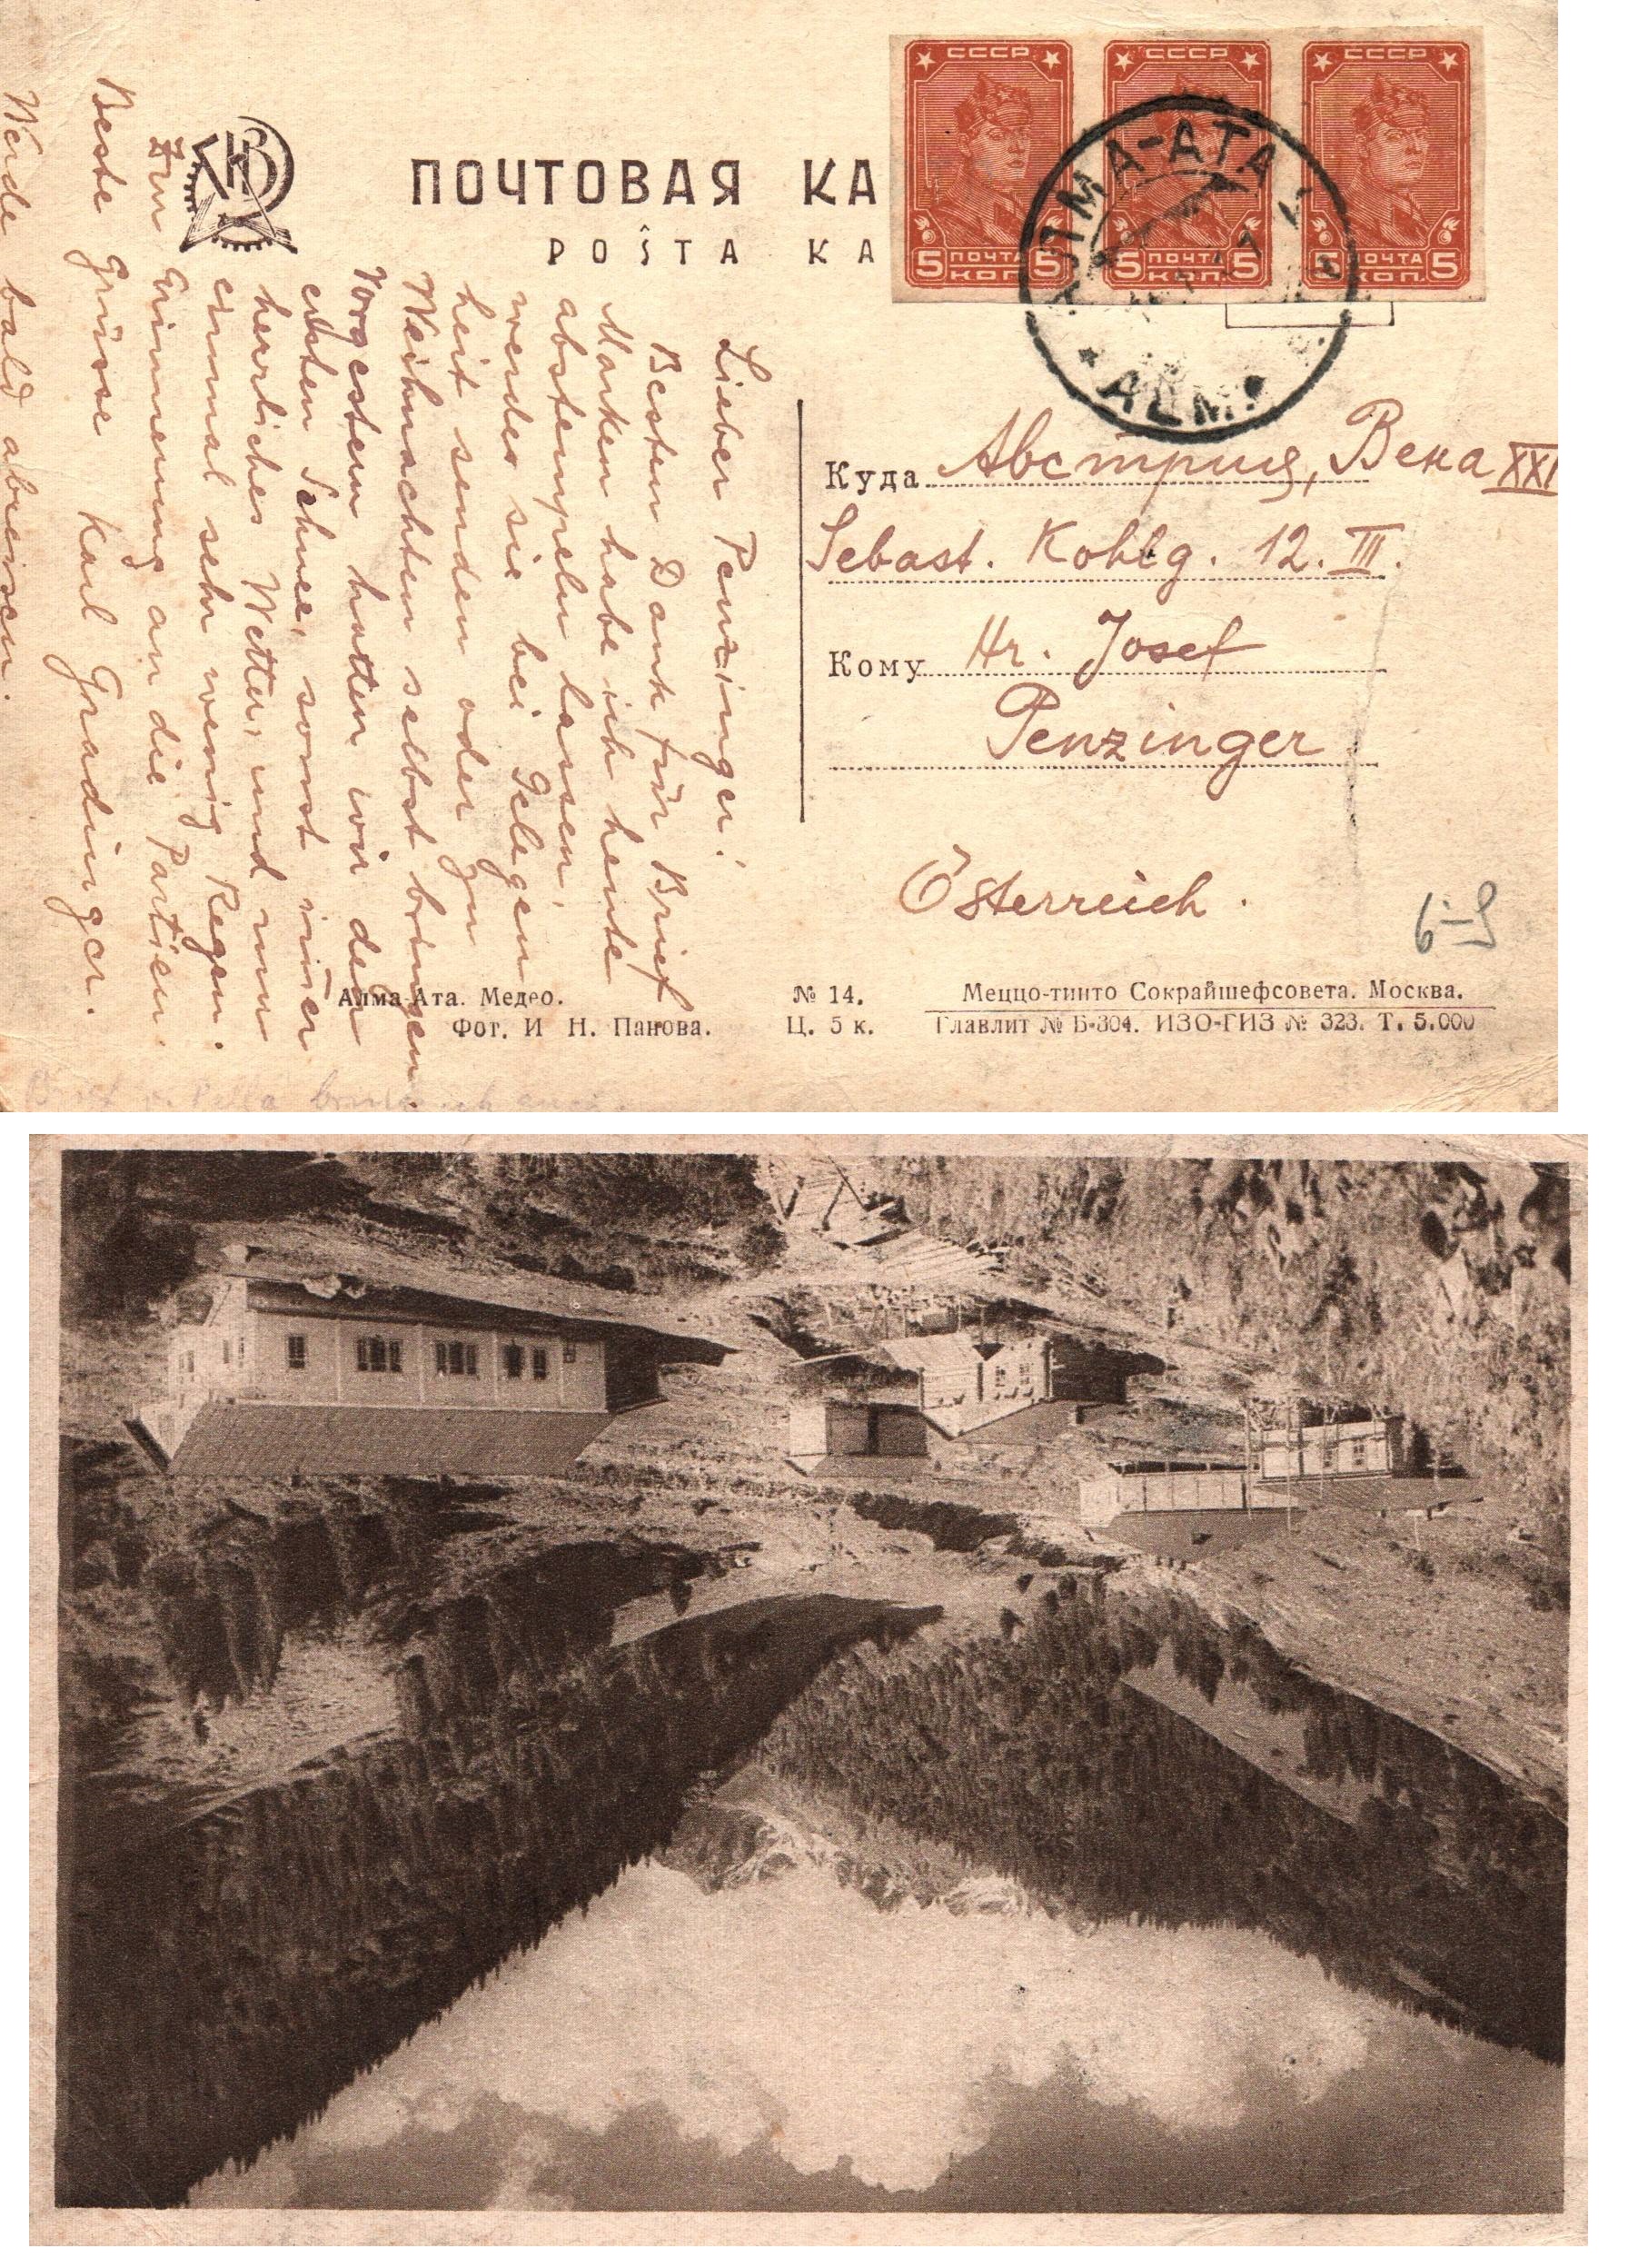 ПОЧТОВАЯ КА
POŜTA KA
СССР
5 ПОЧТА 5
КОП.
СССР
5 ПОЧТА 5
КОП.
СССР
5 ПОЧТА 5
КОП.
АЛМА-АТА
Куда Австрия, Вена XXI
Sebast. Kohlg. 12. III.
Кому Hr. Josef
Penzinger
Österreich.
Lieber Penzinger!
Besten Dank für Brief
Marken habe ich heute
abstempeln lassen,
werde sie bei Gelegen
heit senden oder zu
Weihnachten selbst bringen
Vorgestern hatten wir den
ersten Schnee, sonst immer
herrliches Wetter, und nur
einmal sehr wenig Regen.
Zur Erinnerung an die Partien
Beste Grüsse Karl Gradinger.
Werde bald abreisen.
Алма-Ата. Медео.
Фот. И Н. Панова.
№ 14.
Ц. 5 к.
Меццо-тинто Сокрайшефсовета. Москва.
Главлит № Б-304. ИЗО-ГИЗ № 323. Т. 5.000